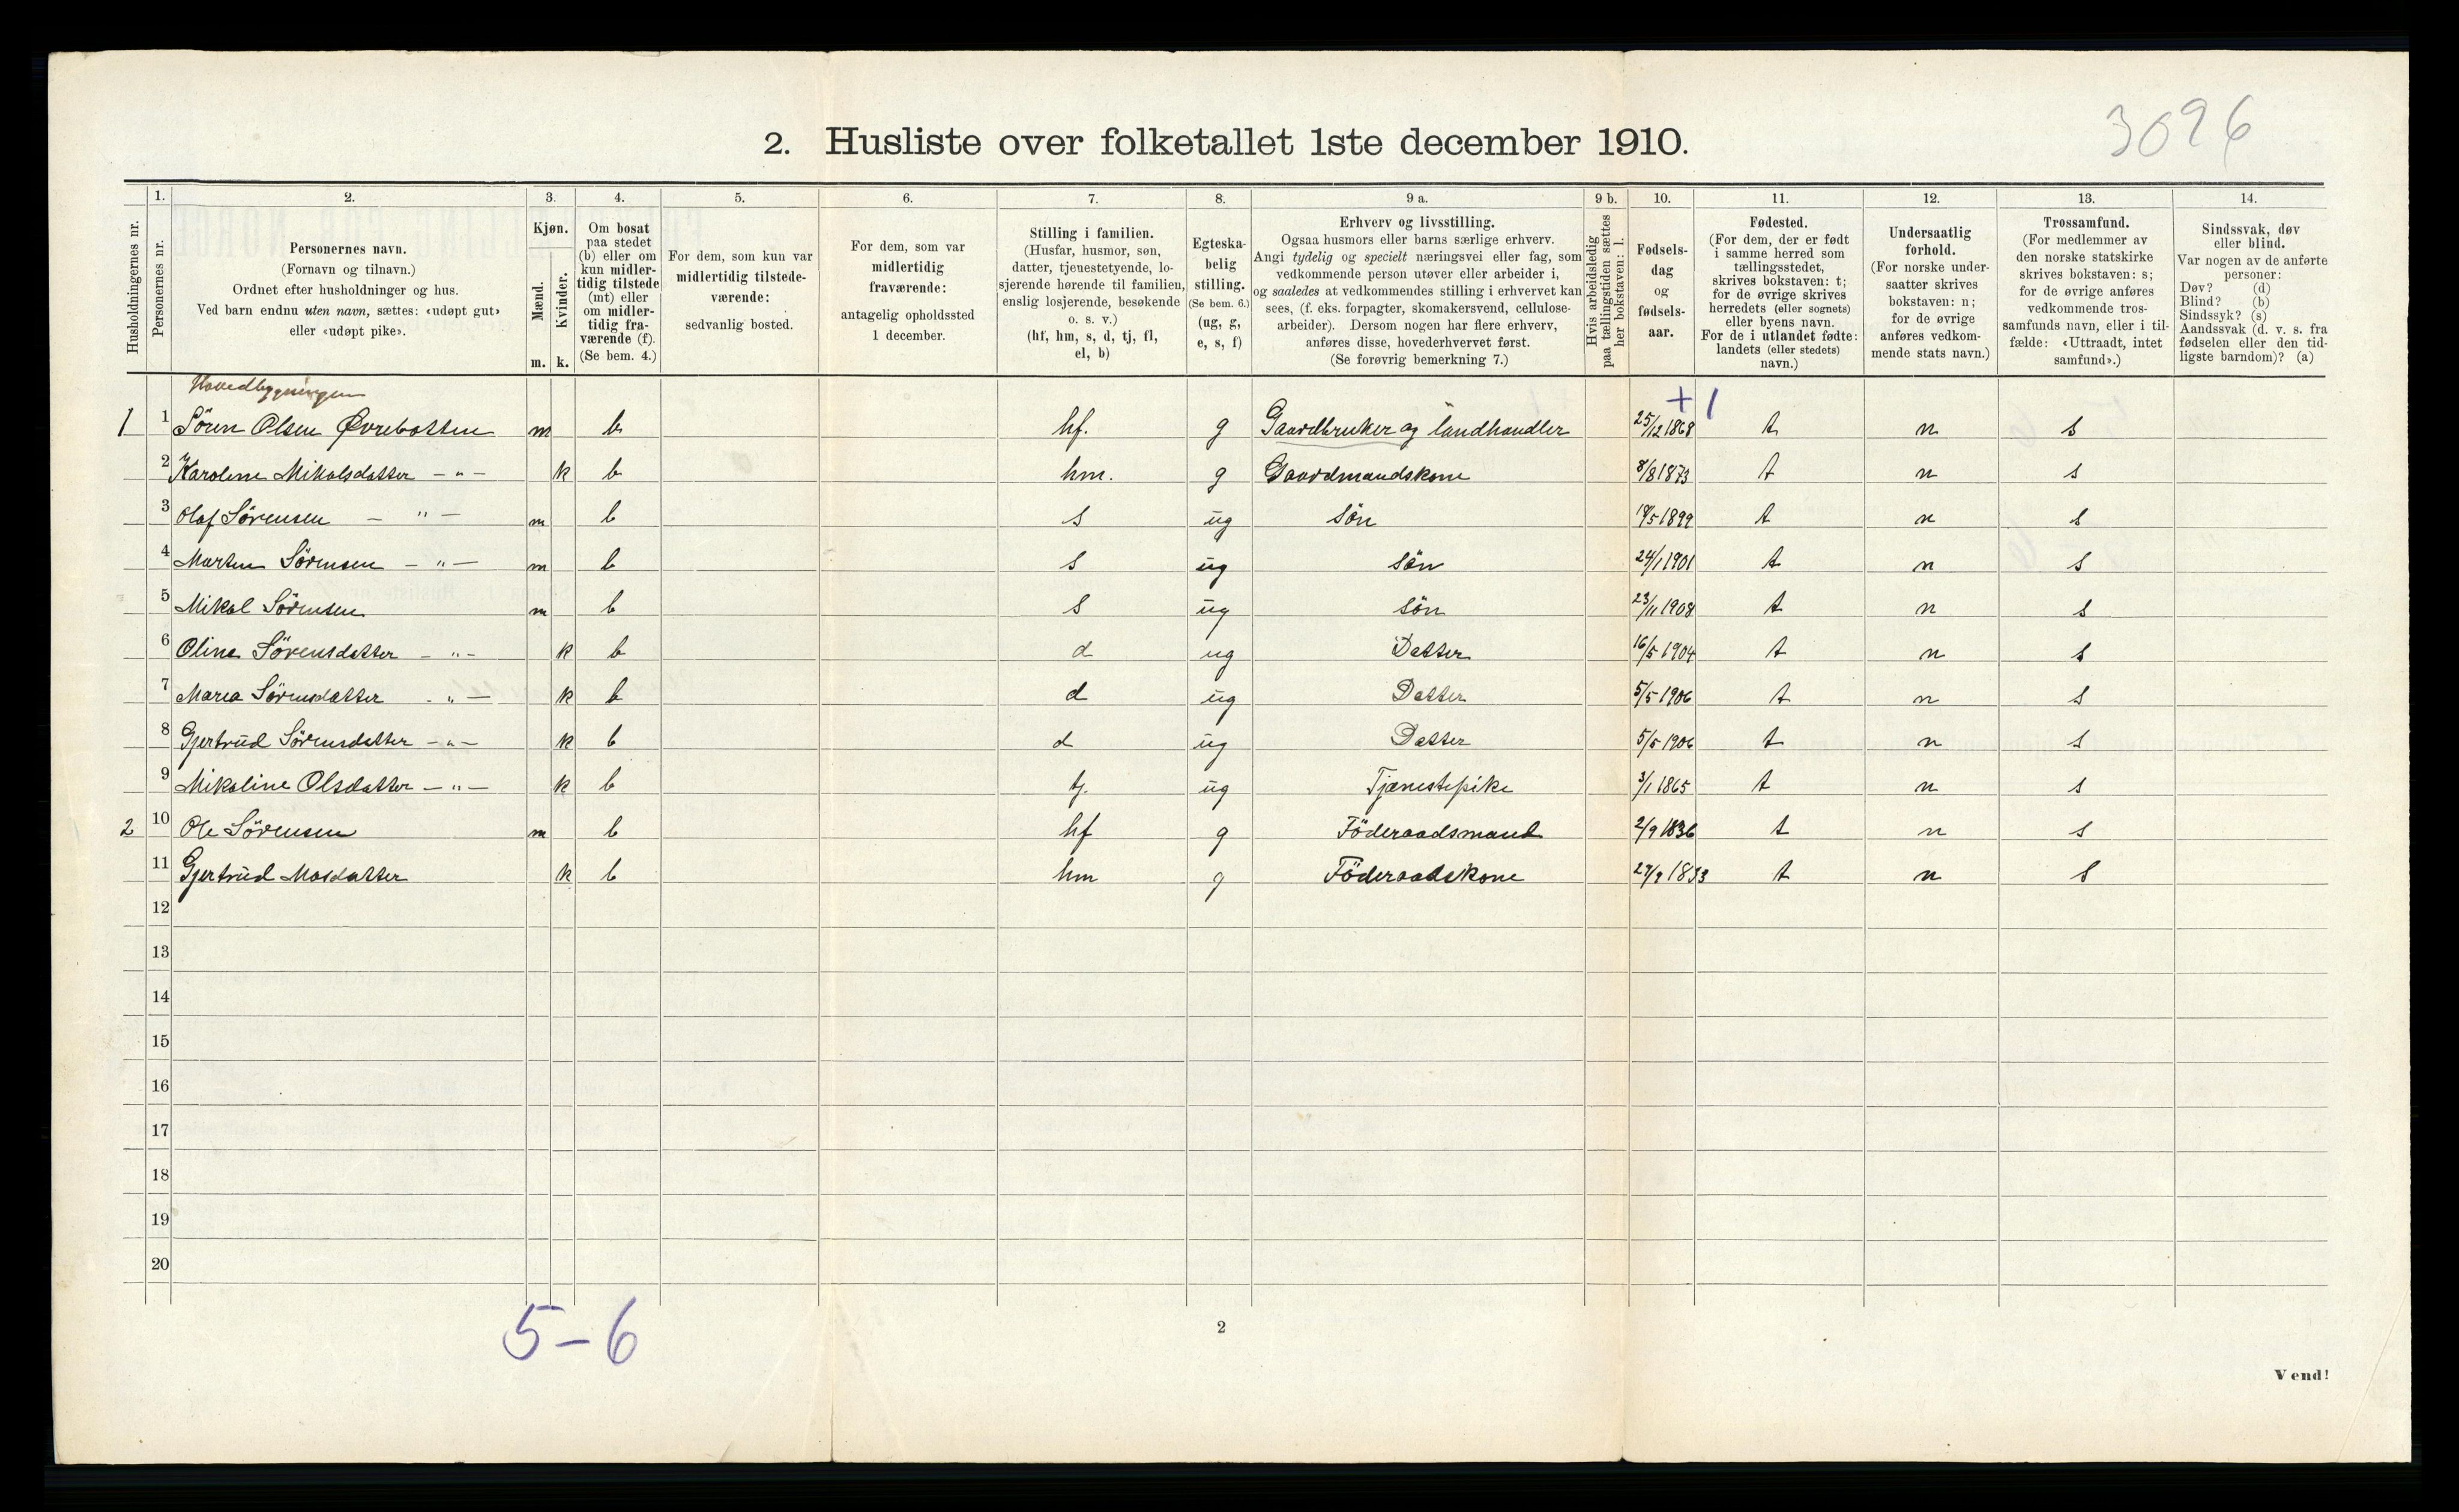 3096
2. Husliste over folketallet 1ste december 1910.
Husholdningernes nr.
1.
Personernes nr.
2.
Personernes navn.
(Fornavn og tilnavn.)
Ordnet efter husholdninger og hus.
Ved barn endnu uten navn, sættes: «udøpt gut»
eller «udøpt pike».
3.
Kjøn.
Mænd.
Kvinder.
m. k.
4.
Om bosat
paa stedet
(b) eller om
kun midler-
tidig tilstede
(mt) eller
om midler-
tidig fra-
værende (f).
(Se bem. 4.)
5.
For dem, som kun var
midlertidig tilstede-
værende:
sedvanlig bosted.
6.
For dem, som var
midlertidig
fraværende:
antagelig opholdssted
1 december.
7.
Stilling i familien.
(Husfar, husmor, søn,
datter, tjenestetyende, lo-
sjerende hørende til familien,
enslig losjerende, besøkende
o. s. v.)
(hf, hm, s, d, tj, fl,
el, b)
8.
Egteska-
belig
stilling.
(Se bem. 6.)
(ug, g,
e, s, f)
9 a.
Erhverv og livsstilling.
Ogsaa husmors eller barns særlige erhverv.
Angi tydelig og specielt næringsvei eller fag, som
vedkommende person utøver eller arbeider i,
og saaledes at vedkommendes stilling i erhvervet kan
sees, (f. eks. forpagter, skomakersvend, cellulose-
arbeider). Dersom nogen har flere erhverv,
anføres disse, hovederhvervet først.
(Se forøvrig bemerkning 7.)
9 b.
Hvis arbeidsledig
paa tællingstiden sættes
her bokstaven: l.
10.
Fødsels-
dag
og
fødsels-
aar.
11.
Fødested.
(For dem, der er født
i samme herred som
tællingsstedet,
skrives bokstaven: t;
for de øvrige skrives
herredets (eller sognets)
eller byens navn.
For de i utlandet fødte:
landets (eller stedets)
navn.)
12.
Undersaatlig
forhold.
(For norske under-
saatter skrives
bokstaven: n;
for de øvrige
anføres vedkom-
mende stats navn.)
13.
Trossamfund.
(For medlemmer av
den norske statskirke
skrives bokstaven: s;
for de øvrige anføres
vedkommende tros-
samfunds navn, eller i til-
fælde: «Uttraadt, intet
samfund».)
14.
Sindssvak, døv
eller blind.
Var nogen av de anførte
personer:
Døv? (d)
Blind? (b)
Sindssyk? (s)
Aandssvak (d. v. s. fra
fødselen eller den tid-
ligste barndom)? (a)
Hovedbygningen
+ 1
1 1 Sören Olsen Øvrebotten m b hf. g Gaardbruker og landhandler 25/12 1868 t n s
2 Karoline Mikalsdatter - " - k b hm. g Gaardmandskone 8/8 1873 t n s
3 Olaf Sörensen - " - m b s ug sön 19/5 1899 t n s
4 Marten Sörensen - " - m b s ug sön 24/1 1901 t n s
5 Mikal Sörensen m b s ug sön 23/11 1908 t n s
6 Oline Sörensdatter - " - k b d ug Datter 16/5 1904 t n s
7 Maria Sörensdatter - " - k b d ug Datter 5/5 1906 t n s
8 Gjertrud Sörensdatter - " - k b d ug Datter 5/5 1906 t n s
9 Mikaline Olsdatter - " - k b tj. ug Tjænestepike 3/1 1865 t n s
2 10 Ole Sörensen m b hf g Föderaadsmand 2/9 1836 t n s
11 Gjertrud Masdatter k b hm g Föderaadskone 1833 t n s
12
13
14
15
16
17
18
19
20
5-6
2
Vend!